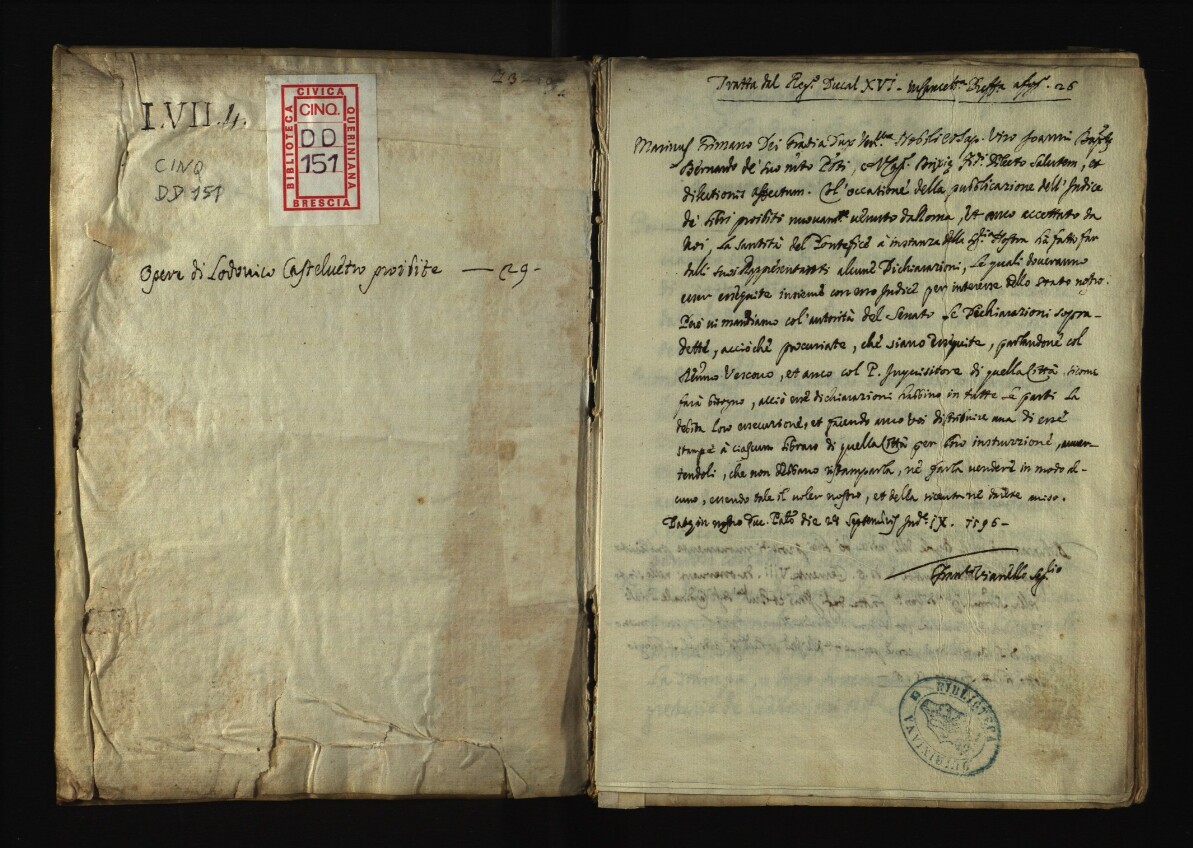 I.VII.4.
CIVICA
BIBLIOTECA
QUERINIANA
BRESCIA
CINQ.
DD
151
CINQ
DD 151
23
Opere di Lodovico Casteluetro proibite — 29 -
Tratta dal Reg.º Ducal XVI. 26
Marinus Grimano Dei Gratia Dux Nobili et Sap. Viro Joanni
Bernardo de suo Dilecto Salutem, et
dilectionis affectum. Coll'occatione della pubblicazione dell'Indice
de libri proibiti nuouam.te uenuto da Roma, et anco accettato da
Noi, La Santità del Pontefice à instanza della Nostra hà fatto far
dalli suoi Rappresentanti alcune Dichiarazioni, Le quali doueranno
esser esseguite insieme con esso Indice per interesse dello stato nostro.
Però ui mandiamo col'autorità del Senato Le Dechiarazioni sopra-
dette, acciòche procuriate, che siano esseguite, parlandone col
Vescouo, et anco col P. Inquisitore di quella Città, sicome
farà bisogno, acciò esse dichiarazioni habbino in tutte Le parti La
debita loro essecuzione, et facendo anco voi distribuire una di esse
stampe à ciascun libraro di quella Città per loro instruzzione, auuer-
tendoli, che non debbano ristamparla, nè farla uendere in modo al-
cuno, essendo tale il uoler nostro, et della
Dat. in nostro Duc. Pal.o die 24 Septembris Ind.e IX. 1596 -
Vianello Seg.rio
BIBLIOTECA
QUIRINIANA